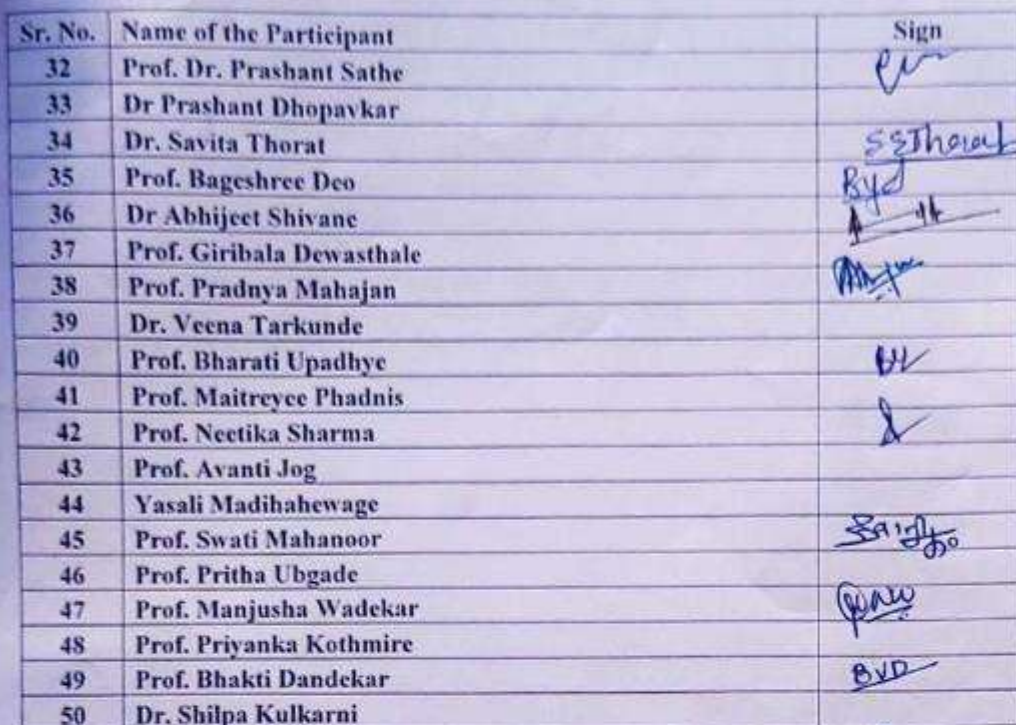 Sr. No. Name of the Participant Sign
32 Prof. Dr. Prashant Sathe
33 Dr Prashant Dhopavkar
34 Dr. Savita Thorat SSThorat
35 Prof. Bageshree Deo Byd
36 Dr Abhijeet Shivane
37 Prof. Giribala Dewasthale
38 Prof. Pradnya Mahajan
39 Dr. Veena Tarkunde
40 Prof. Bharati Upadhye
41 Prof. Maitreyee Phadnis
42 Prof. Neetika Sharma
43 Prof. Avanti Jog
44 Yasali Madihahewage
45 Prof. Swati Mahanoor
46 Prof. Pritha Ubgade
47 Prof. Manjusha Wadekar
48 Prof. Priyanka Kothmire
49 Prof. Bhakti Dandekar BVD
50 Dr. Shilpa Kulkarni